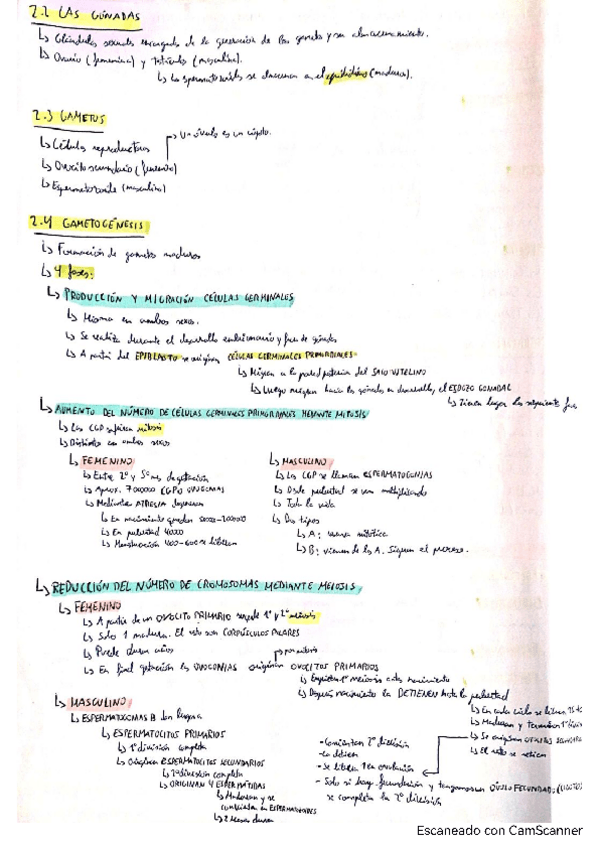 2.2 LAS GÓNADAS
↳ Glándulas sexuales encargadas de la generación de los gametos y su almacenamiento.
↳ Ovario (femenina) y Testículo (masculino).
↳ Los espermatozoides se almacenan en el epidídimo (maduran).
2.3 GAMETOS
↳ Células reproductoras
→ Un óvulo es un cigoto.
↳ Ovocito secundario (femenino)
↳ Espermatozoide (masculino)
2.4 GAMETOGÉNESIS
↳ Formación de gametos maduros
↳ 4 fases:
↳ PRODUCCIÓN Y MIGRACIÓN CÉLULAS GERMINALES
↳ Misma en ambos sexos.
↳ Se realiza durante el desarrollo embrionario y fuera de gónadas
↳ A partir del EPIBLASTO se originan CÉLULAS GERMINALES PRIMORDIALES
↳ Migran a la pared posterior del SACO VITELINO
↳ Luego migran hacia las gónadas en desarrollo, el ESBOZO GONADAL
↳ Tienen lugar las siguientes fases
↳ AUMENTO DEL NÚMERO DE CÉLULAS GERMINALES PRIMORDIALES MEDIANTE MITOSIS
↳ Las CGP sufren mitosis
↳ Distinto en ambos sexos
↳ FEMENINO
↳ Entre 2º y 5º mes de gestación
↳ Aprox. 7000000 CGP u OVOGONIAS
↳ Mediante ATRESIA degeneran
↳ En nacimiento quedan
↳ En pubertad 40000
↳ Menstruación 400-600 se liberan
↳ MASCULINO
↳ Las CGP se llaman ESPERMATOGONIAS
↳ Desde pubertad se van multiplicando
↳ Toda la vida
↳ Dos tipos
↳ A: reserva mitótica
↳ B: vienen de las A. Siguen el proceso.
↳ REDUCCIÓN DEL NÚMERO DE CROMOSOMAS MEDIANTE MEIOSIS
↳ FEMENINO
↳ A partir de un OVOCITO PRIMARIO sucede 1ª y 2ª meiosis
↳ Solo 1 madura. El resto son CORPÚSCULOS POLARES
↳ Puede durar años
→ por mitosis
↳ En final gestación las OVOGONIAS originan OVOCITOS PRIMARIOS
↳ Empiezan 1ª meiosis antes nacimiento
↳ Después nacimiento la DETIENEN hasta la pubertad
↳ En cada ciclo se liberan
↳ Maduran y terminan 1ª
↳ Se originan
↳ El resto se
- Comienzan 2ª división
- La detienen
- Se libera 1 en ovulación
- Solo si hay fecundación y tengamos un ÓVULO FECUNDADO (CIGOTO)
se completa la 2ª división
↳ MASCULINO
↳ ESPERMATOGONIAS B dan lugar a
↳ ESPERMATOCITOS PRIMARIOS
↳ 1ª división completa
↳ Originan ESPERMATOCITOS SECUNDARIOS
↳ 2ª división completa
↳ ORIGINAN 4 ESPERMÁTIDAS
↳ Maduran y se
convierten en ESPERMATOZOIDES
↳ 2 meses duran
Escaneado con CamScanner